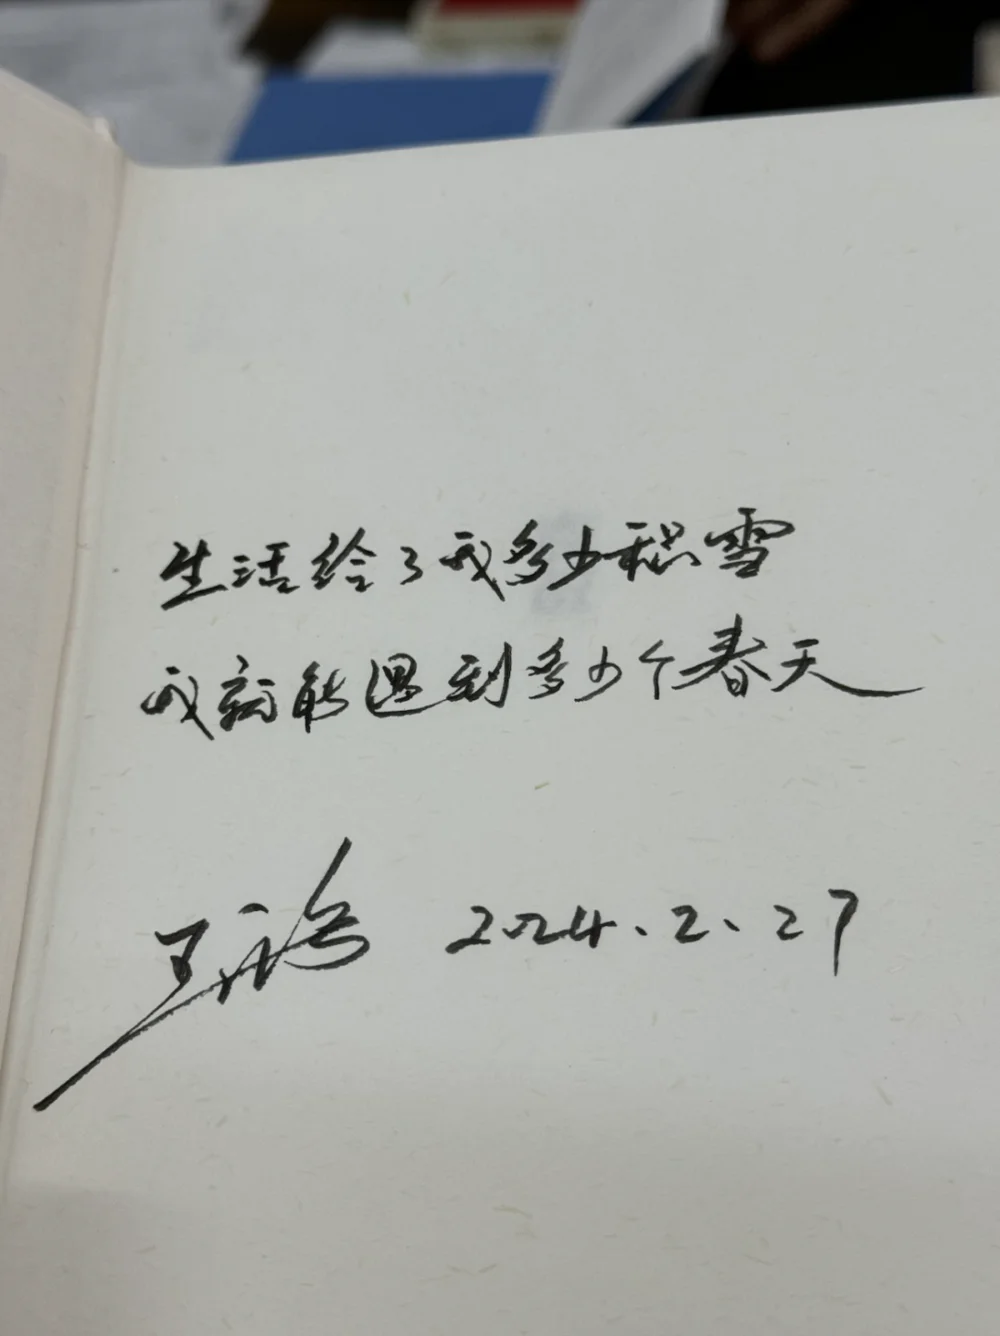 生活给了我多少积雪
我就能遇到多少个春天
王 2024.2.27